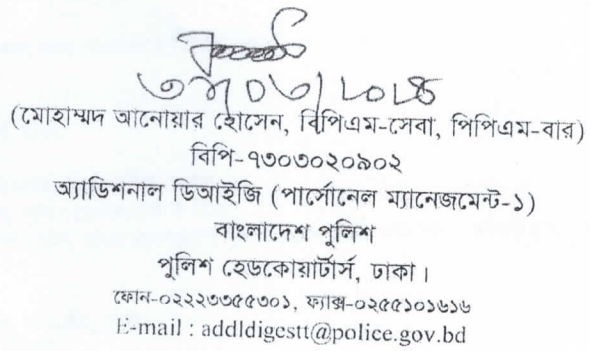 (মোহাম্মদ আনোয়ার হোসেন, বিপিএম-সেবা, পিপিএম-বার)
বিপি-৭৩০৩০২০৯০২
অ্যাডিশনাল ডিআইজি (পার্সোনেল ম্যানেজমেন্ট-১)
বাংলাদেশ পুলিশ
পুলিশ হেডকোয়ার্টার্স, ঢাকা।
ফোন-০২২২৩৩৫৫৩০১, ফ্যাক্স-০২৫৫১০১৬১৬
E-mail : addldigestt@police.gov.bd